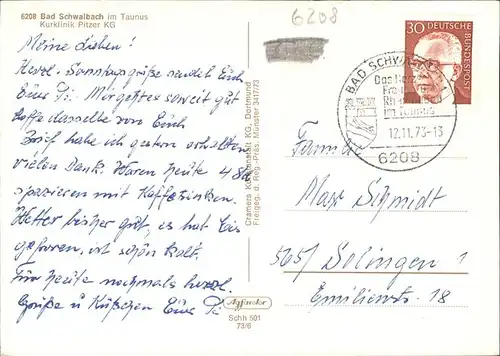 6208 Bad Schwalbach im Taunus
Kurklinik Pitzer KG
6208
Meine Lieben!
Herzl. Sonntagsgrüße sendet Euch
Eure Mir geht es soweit gut
hoffe dasselbe von Euch
Brief habe ich gestern erhalten
vielen Dank. Waren heute
spazieren mit Kaffetrinken.
Wetter bisher gut, es hat Eis
gefroren, ist schön kalt.
Für heute nochmals herzl.
Grüße u Küßchen Eure
Cramers Kunstanstalt KG, Dortmund
Freigeg. d. Reg.-Präs. Münster 3417/73
Agfacolor
Schh 501
73/6
30
DEUTSCHE BUNDESPOST
BAD SCHWALBACH
Das Herz
im Taunus
12.11.73-13
6208
Familie
Max Schmidt
565/ Solingen 1
Emilienstr. 18